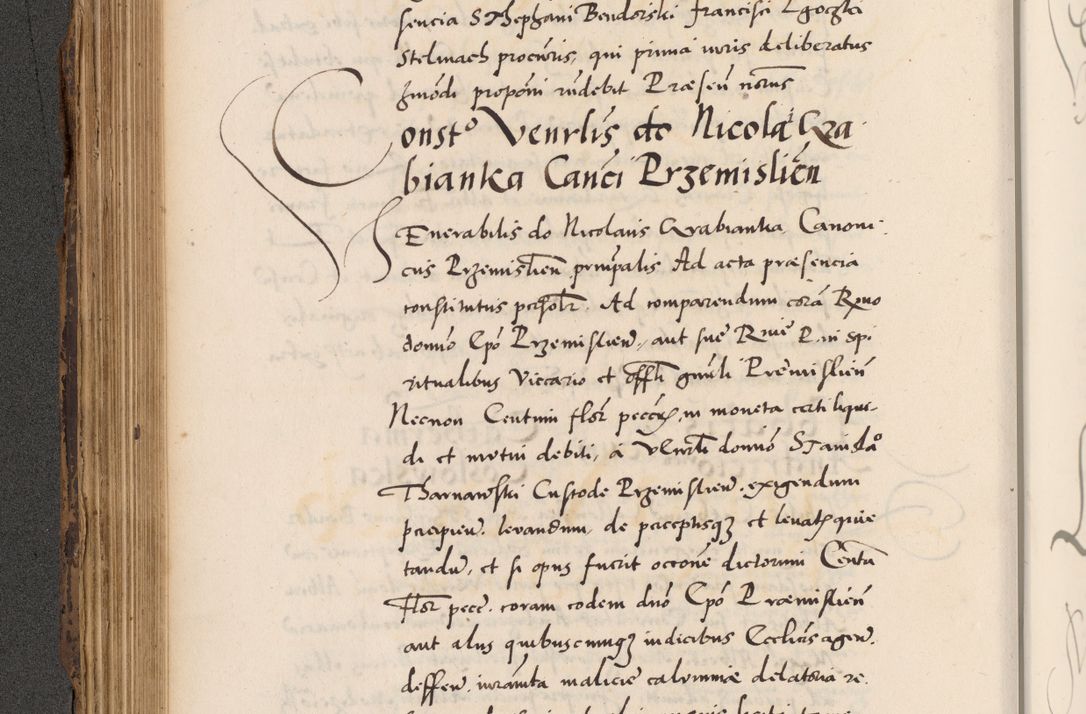 sencia Stephani Bendorski Francisci Lgoczki
Stelmach procuris, qui prima iuris deliberatus
hmodi proponi rndebit Præsen notrus
Consto Venrlis do Nicolai Gra
bianka Canci Przemislien
VEnerabilis do Nicolaus Grabianka Canoni
cus Przemislien prnpalis Ad acta præsencia
constitutus persolr. Ad comparendum corā Rmo
domno Epo Przemislien, aut sue Rme P. in spi
ritualibus Viccario et offli gnrli Premislien
Necnon Centum flor pecc in moneta certi liqui-
di et metui debiti, a Venrli domno Stanislao
Tharnawski Custode Przemislien. exigendum
percipien. levandum, de perceptisqz et levat quie
tandu, et si opus fuerit occone dictorum Centu
flor pecc. coram eodem dno Epo Præmislien
aut alus quibuscunqz iudicibus Ecclicis agen.
deffen. iuramta malicie calumniæ delatoria re-